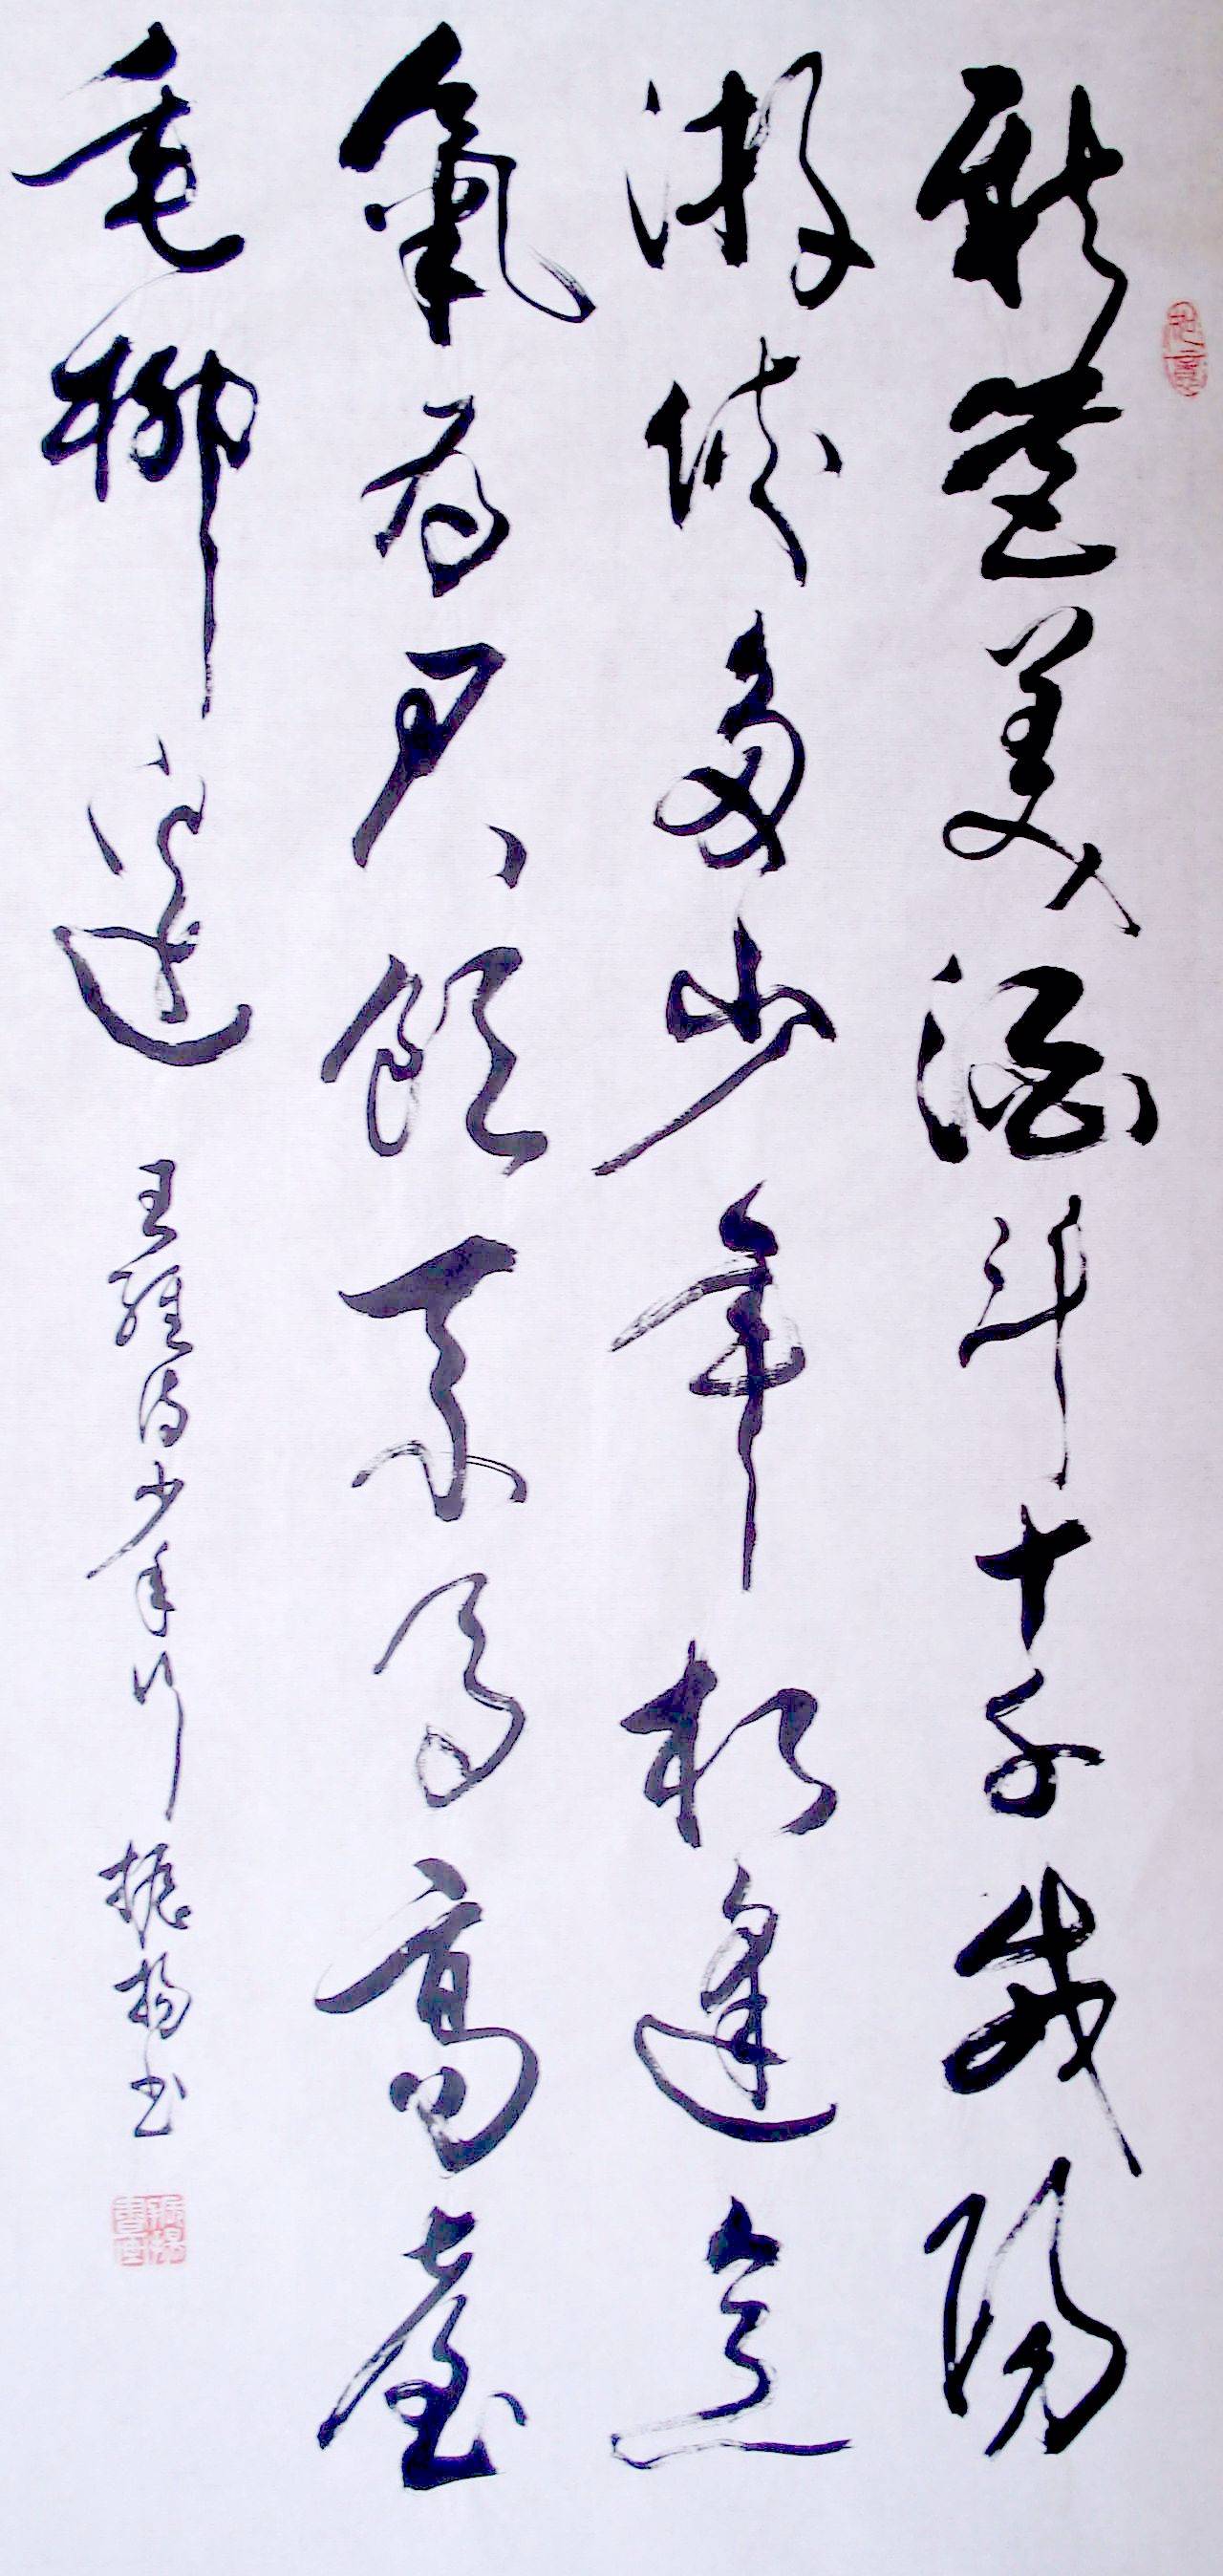 新豐美酒斗十千咸陽
游俠多少年相逢意
氣為君飲系馬高臺
垂柳邊 王維詩少年行 振揚书